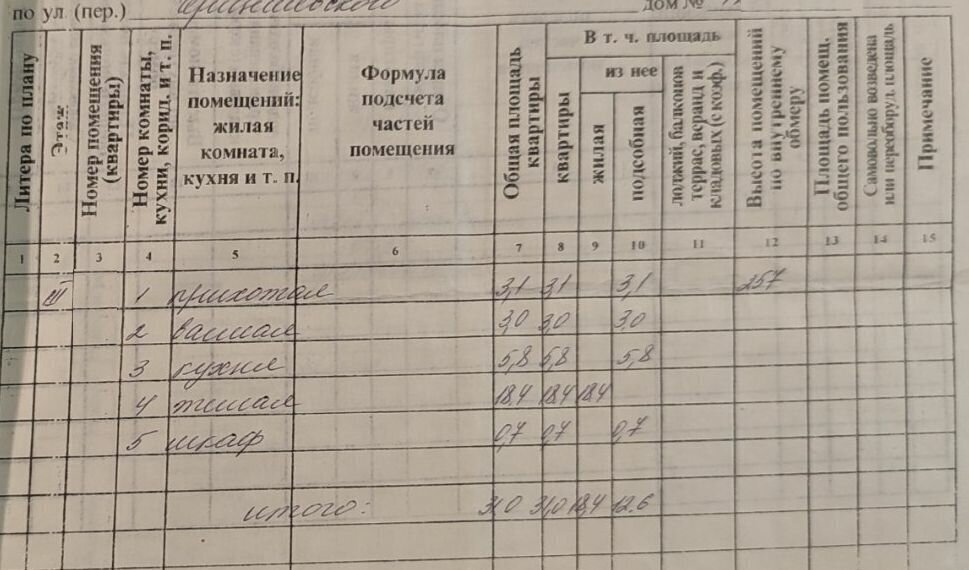 по ул. (пер.) дом №
Литера по плану Этаж Номер помещения (квартиры) Номер комнаты, кухни, корид. и т. п. Назначение помещений: жилая комната, кухня и т. п. Формула подсчета частей помещения Общая площадь квартиры В т. ч. площадь квартиры из нее жилая подсобная лоджий, балконов террас, веранд и кладовых (с коэф.) Высота помещений по внутреннему обмеру Площадь помещ. общего пользования Самовольно возведена или переоборуд. площадь Примечание
1 2 3 4 5 6 7 8 9 10 11 12 13 14 15
III 1 прихожая 3,1 3,1 3,1 257
2 ванная 3,0 3,0 3,0
3 кухня 5,8 5,8 5,8
4 жилая 18,4 18,4 18,4
5 шкаф 0,7 0,7 0,7
итого: 31,0 31,0 18,4 12.6